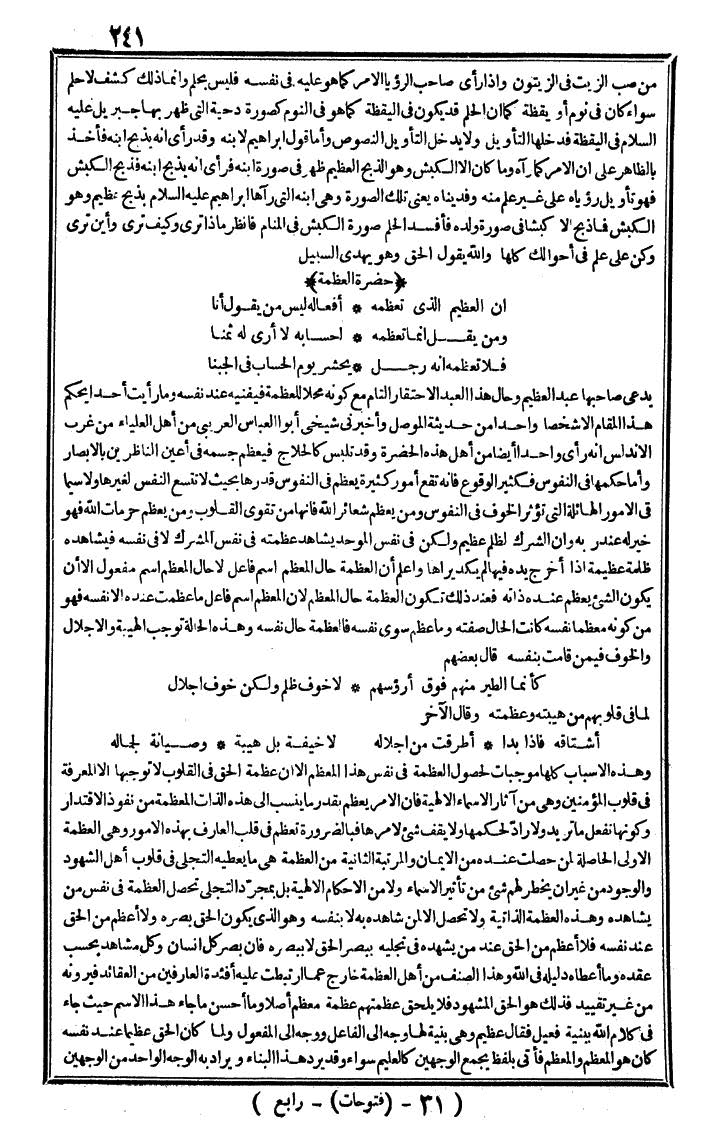 ٢٤١
من صب الزيت فى الزيتون واذا رأى صاحب الرؤيا الامر كما هو عليه فى نفسه فليس بحلم وانما ذلك كشف لا حلم
سواء كان فى نوم أو يقظة كما ان الحلم قد يكون فى اليقظة كما هو فى النوم كصورة دحية التى ظهر بها جبريل عليه
السلام فى اليقظة فدخلها التأويل ولا يدخل التأويل النصوص وأما قول ابراهيم لابنه وقد رأى انه يذبح ابنه فأخذ
بالظاهر على ان الامر كما رآه وما كان الا الكبش وهو الذبح العظيم ظهر فى صورة ابنه فرأى انه يذبح ابنه فذبح الكبش
فهو تأويل رؤياه على غير علم منه وفديناه يعنى تلك الصورة وهى ابنه التى رآها ابراهيم عليه السلام بذبح عظيم وهو
الكبش فاذبح الا كبشا فى صورة ولده فأفسد الحلم صورة الكبش فى المنام فانظر ماذا ترى وكيف ترى وأين ترى
وكن على علم فى أحوالك كلها والله يقول الحق وهو يهدى السبيل
﴿حضرة العظمة﴾
ان العظيم الذى تعظمه * أفعاله ليس من يقول أنا
ومن يقــل انما تعظمه * احسابه لا أرى له ثمنا
فلا تعظمه انه رجــل * يحشر يوم الحساب فى الجبنا
يدعى صاحبها عبد العظيم وحال هذا العبد الاحتقار التام مع كونه محلا للعظمة فيفنيه عند نفسه وما رأيت أحدا يحكم
هذا المقام الا شخصا واحدا من حديثة الموصل وأخبرنى شيخى أبو العباس العريبى من أهل العلياء من غرب
الاندلس انه رأى واحدا أيضا من أهل هذه الحضرة وقد تلبس كالحلاج فيعظم جسمه فى أعين الناظرين بالابصار
وأما حكمها فى النفوس فكثير الوقوع فانه تقع أمور كثيرة يعظم فى النفوس قدرها بحيث لا تتسع النفس لغيرها ولا سيما
فى الامور الهائلة التى تؤثر الخوف فى النفوس ومن يعظم شعائر الله فانها من تقوى القلوب ومن يعظم حرمات الله فهو
خير له عند ربه وان الشرك لظلم عظيم ولكن فى نفس الموحد يشاهد عظمته فى نفس المشرك لا فى نفسه فيشاهده
ظلمة عظيمة اذا أخرج يده فيها لم يكد يراها واعلم أن العظمة حال المعظم اسم فاعل لا حال المعظم اسم مفعول الا أن
يكون الشئ يعظم عنده ذاته فعند ذلك تكون العظمة حال المعظم لان المعظم اسم فاعل ما عظمت عنده الا نفسه فهو
من كونه معظما نفسه كانت الحال صفته وما عظم سوى نفسه فالعظمة حال نفسه وهذه الحالة توجب الهيبة والاجلال
والخوف فيمن قامت بنفسه قال بعضهم
كأنما الطير منهم فوق أرؤسهم * لا خوف ظلم ولكن خوف اجلال
لما فى قلوبهم من هيبته وعظمته وقال الآخر
أشتاقه فاذا بدا * أطرقت من اجلاله لا خيفــة بل هيبة * وصــيانة لجماله
وهذه الاسباب كلها موجبات لحصول العظمة فى نفس هذا المعظم الا ان عظمة الحق فى القلوب لا توجبها الا المعرفة
فى قلوب المؤمنين وهى من آثار الاسماء الالهية فان الامر يعظم بقدر ما ينسب الى هذه الذات المعظمة من نفوذ الاقتدار
وكونها تفعل ما تريد ولا راد لحكمها ولا يقف شئ لامرها فبالضرورة تعظم فى قلب العارف بهذه الامور وهى العظمة
الاولى الحاصلة لمن حصلت عنده من الايمان والمرتبة الثانية من العظمة هى ما يعطيه التجلى فى قلوب أهل الشهود
والوجود من غير ان يخطر لهم شئ من تأثير الاسماء ولا من الاحكام الالهية بل بمجرد التجلى تحصل العظمة فى نفس من
يشاهده وهذه العظمة الذاتية ولا تحصل الا لمن شاهده به لا بنفسه وهو الذى يكون الحق بصره ولا أعظم من الحق
عند نفسه فلا أعظم من الحق عند من يشهده فى تجليه ببصر الحق لا ببصره فان بصر كل انسان وكل مشاهد بحسب
عقده وما أعطاه دليله فى الله وهذا الصنف من أهل العظمة خارج عما ارتبطت عليه أفئدة العارفين من العقائد فيرونه
من غير تقييد فذلك هو الحق المشهود فلا يلحق عظمتهم عظمة معظم أصلا وما أحسن ما جاء هذا الاسم حيث جاء
فى كلام الله ببنية فعيل فقال عظيم وهى بنية لها وجه الى الفاعل ووجه الى المفعول ولما كان الحق عظيما عند نفسه
كان هو المعظم والمعظم فأتى بلفظ يجمع الوجهين كالعليم سواء وقد يرد هذا البناء ويراد به الوجه الواحد من الوجهين
( ٣١ - (فتوحات) - رابع )